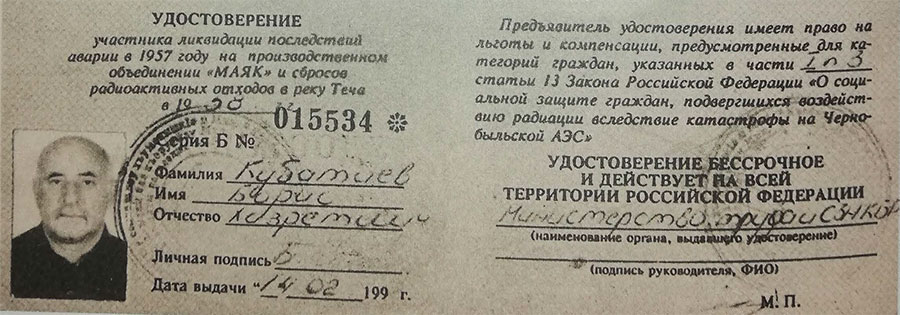 УДОСТОВЕРЕНИЕ
участника ликвидации последствий
аварии в 1957 году на производственном
объединении «МАЯК» и сбросов
радиоактивных отходов в реку Теча
в 19
015534
Серия Б №
Фамилия Кубатиев
Имя Борис
Отчество
Личная подпись Б
Дата выдачи "14 02 199 г.
Предъявитель удостоверения имеет право на
льготы и компенсации, предусмотренные для ка-
тегорий граждан, указанных в части 1 п 3
статьи 13 Закона Российской Федерации «О соци-
альной защите граждан, подвергшихся воздейст-
вию радиации вследствие катастрофы на Черно-
быльской АЭС»
УДОСТОВЕРЕНИЕ БЕССРОЧНОЕ
И ДЕЙСТВУЕТ НА ВСЕЙ
ТЕРРИТОРИИ РОССИЙСКОЙ ФЕДЕРАЦИИ
Министерство труда
(наименование органа, выдавшего удостоверение)
(подпись руководителя, ФИО)
М. П.